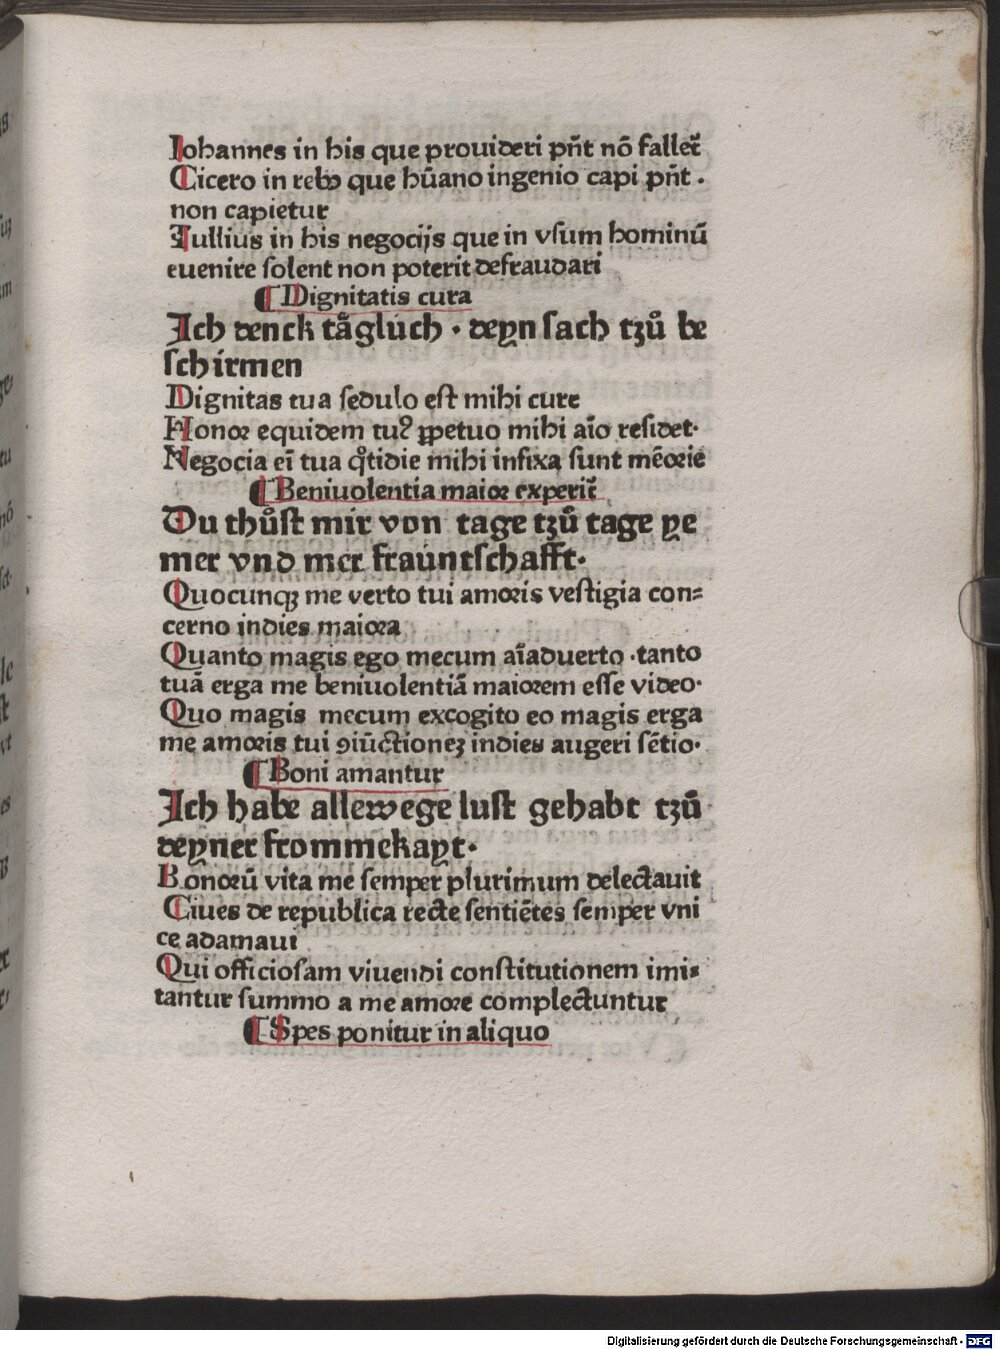 Iohannes in his que prouideri pn̄t nō falleť
Cicero in rebꝫ que hūano ingenio capi pn̄t .
non capietur
Tullius in his negocijs que in vſum hominū
euenire ſolent non poterit defraudari
¶ Dignitatis cura
Ich denck tåglich · deyn ſach tzů be
ſchirmen
Dignitas tua ſedulo eſt mihi cure
Honoꝛ equidem tuꝰ ꝑpetuo mihi aīo reſidet·
Negocia eī tua qͦtidie mihi infixa ſunt mēoꝛie
¶ Beniuolentia maioꝛ experiť
Du thůſt mir von tage tzů tage ye
mer vnd mer fraúntſchafft·
Quocunqꝫ me verto tui amoꝛis veſtigia con⸗
cerno indies maioꝛa
Quanto magis ego mecum aīaduerto ·tanto
tuā erga me beniuolentiā maioꝛem eſſe video·
Quo magis mecum excogito eo magis erga
me amoꝛis tui ꝯiūctioneꝫ indies augeri ſētio·
¶ Boni amantur
Ich habe allewege luſt gehabt tzů
deyner frommekayt·
Bonoꝛū vita me ſemper plurimum delectauit
Ciues de republica recte ſentiētes ſemper vni
ce adamaui
Qui officioſam viuendi conſtitutionem imi⸗
tantur ſummo a me amoꝛe complectuntur
¶ Spes ponitur in aliquo
Digitalisierung gefördert durch die Deutsche Forschungsgemeinschaft - DFG